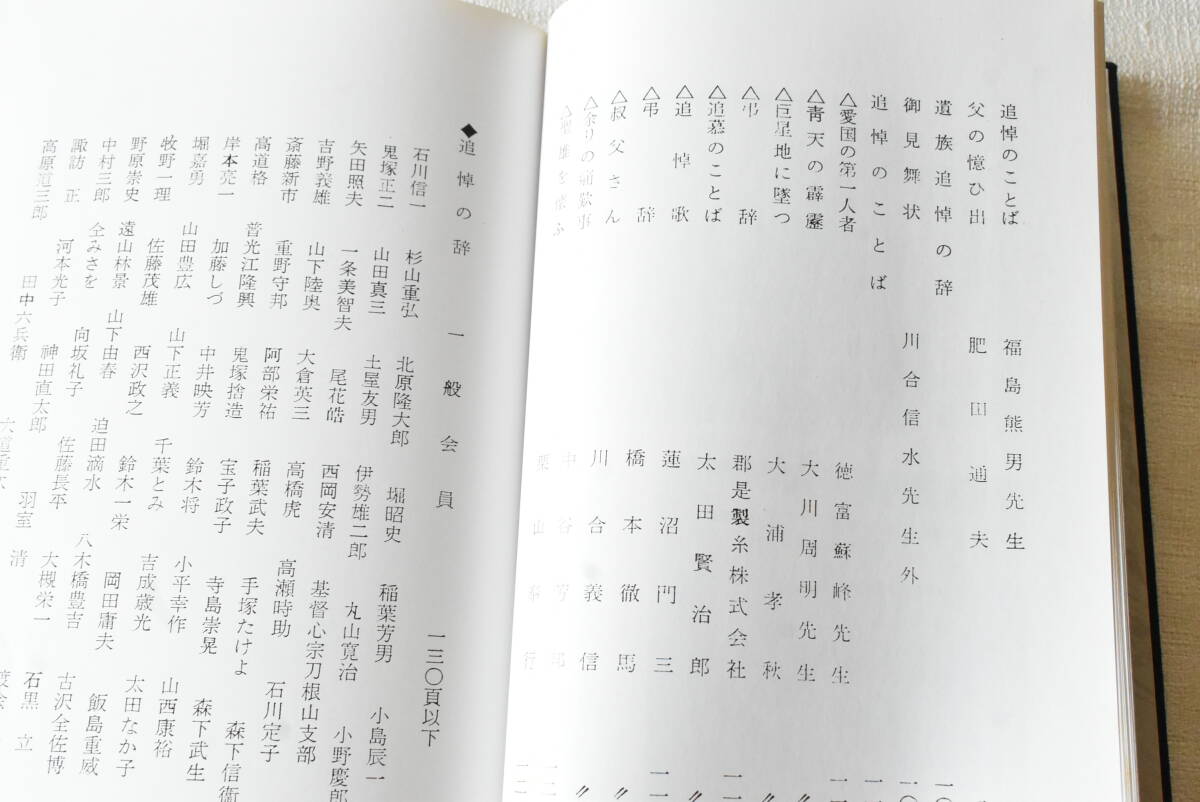 追悼のことば 福島熊男先生
父の憶ひ出 肥田通夫
遺族追悼の辞
御見舞状 川合信水先生外
追悼のことば
△愛国の第一人者 徳富蘇峰先生
△青天の霹靂 大川周明先生
△巨星地に墜つ 大浦孝秋
△弔辞 郡是製糸株式会社
△追慕のことば 太田賢治郎
△追悼歌 蓮沼門三
△弔辞 橋本徹馬
△叔父さん 川合義信
◆追悼の辞 一般会員 一三〇頁以下
石川信一 杉山重弘 北原隆大郎 堀昭史 稲葉芳男 小島辰一
鬼塚正二 山田真三 土屋友男 伊勢雄二郎 丸山寛治 小野慶郎
矢田照夫 一条美智夫 尾花皓 西岡安清 基督心宗刀根山支部
吉野義雄 山下陸奥 大倉英三 高橋虎 高瀬時助 石川定子
斎藤新市 重野守邦 阿部栄祐 稲葉武夫 手塚たけよ 森下信衛
高道格 普光江隆興 鬼塚捨造 宝子政子 寺島崇晃 森下武生
岸本亮一 加藤しづ 中井映芳 鈴木将 小平幸作 山西康裕
堀嘉勇 山田豊広 山下正義 千葉とみ 吉成歳光 太田なか子
牧野一理 佐藤茂雄 西沢政之 鈴木一栄 岡田庸夫 飯島重威
野原崇史 遠山林景 山下由春 迫田滴水 八木橋豊吉 古沢全佐博
中村三郎 仝みさを 向坂礼子 佐藤長平 大槻栄一 石黒立
諏訪正 河本光子 神田直太郎 羽室清
高原范三郎 田中六兵衛